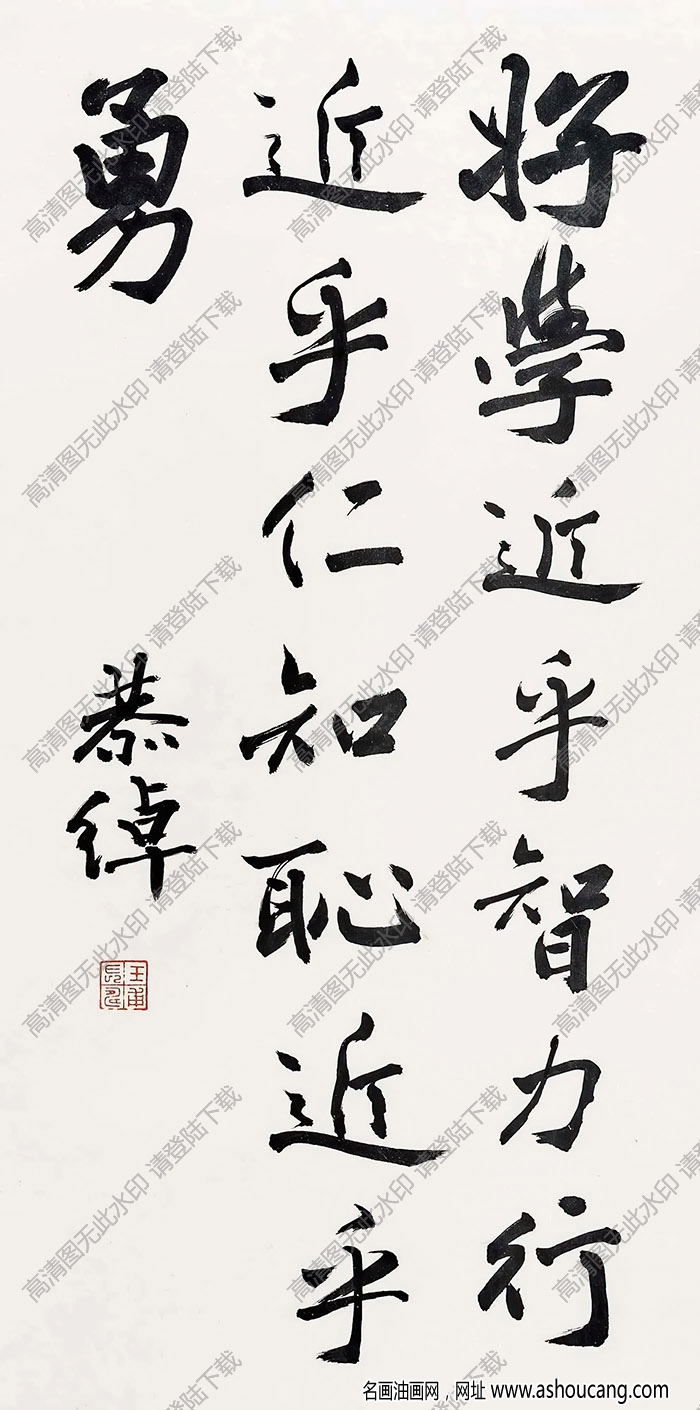 好學近乎智力行
近乎仁知恥近乎
勇
恭綽
高清图无此水印 请登陆下载
名画油画网，网址 www.ashoucang.com